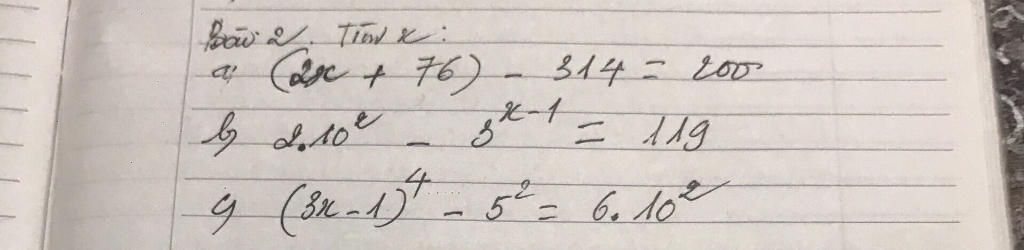 Bài 2. Tìm x:
a, (2x + 76) - 314 = 200
b, 2.10² - 3ˣ⁻¹ = 119
c, (3x-1)⁴ - 5² = 6.10²